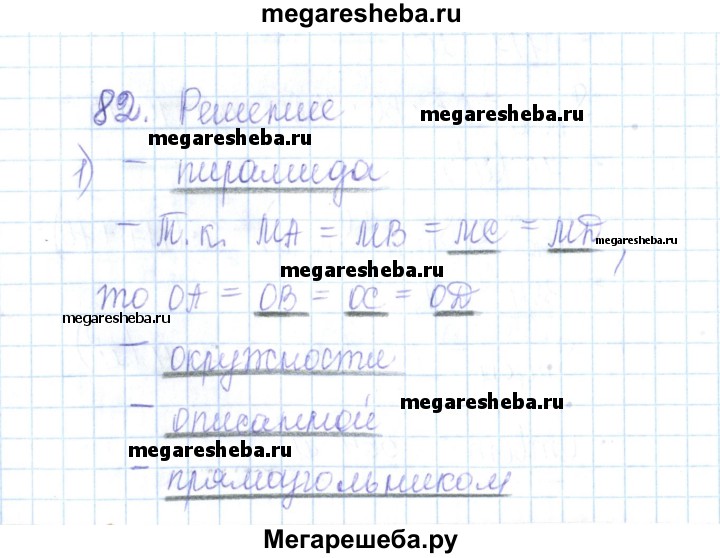 megaresheba.ru
82. Решение
megaresheba.ru
megaresheba.ru
1) - пирамида
megaresheba.ru
megaresheba.ru
- Т.к. MA = MB = MC = MD,
megaresheba.ru
megaresheba.ru
то OA = OB = OC = OD
megaresheba.ru
- окружности
- описанной
megaresheba.ru
megaresheba.ru
- прямоугольником
Мегарешеба.ру